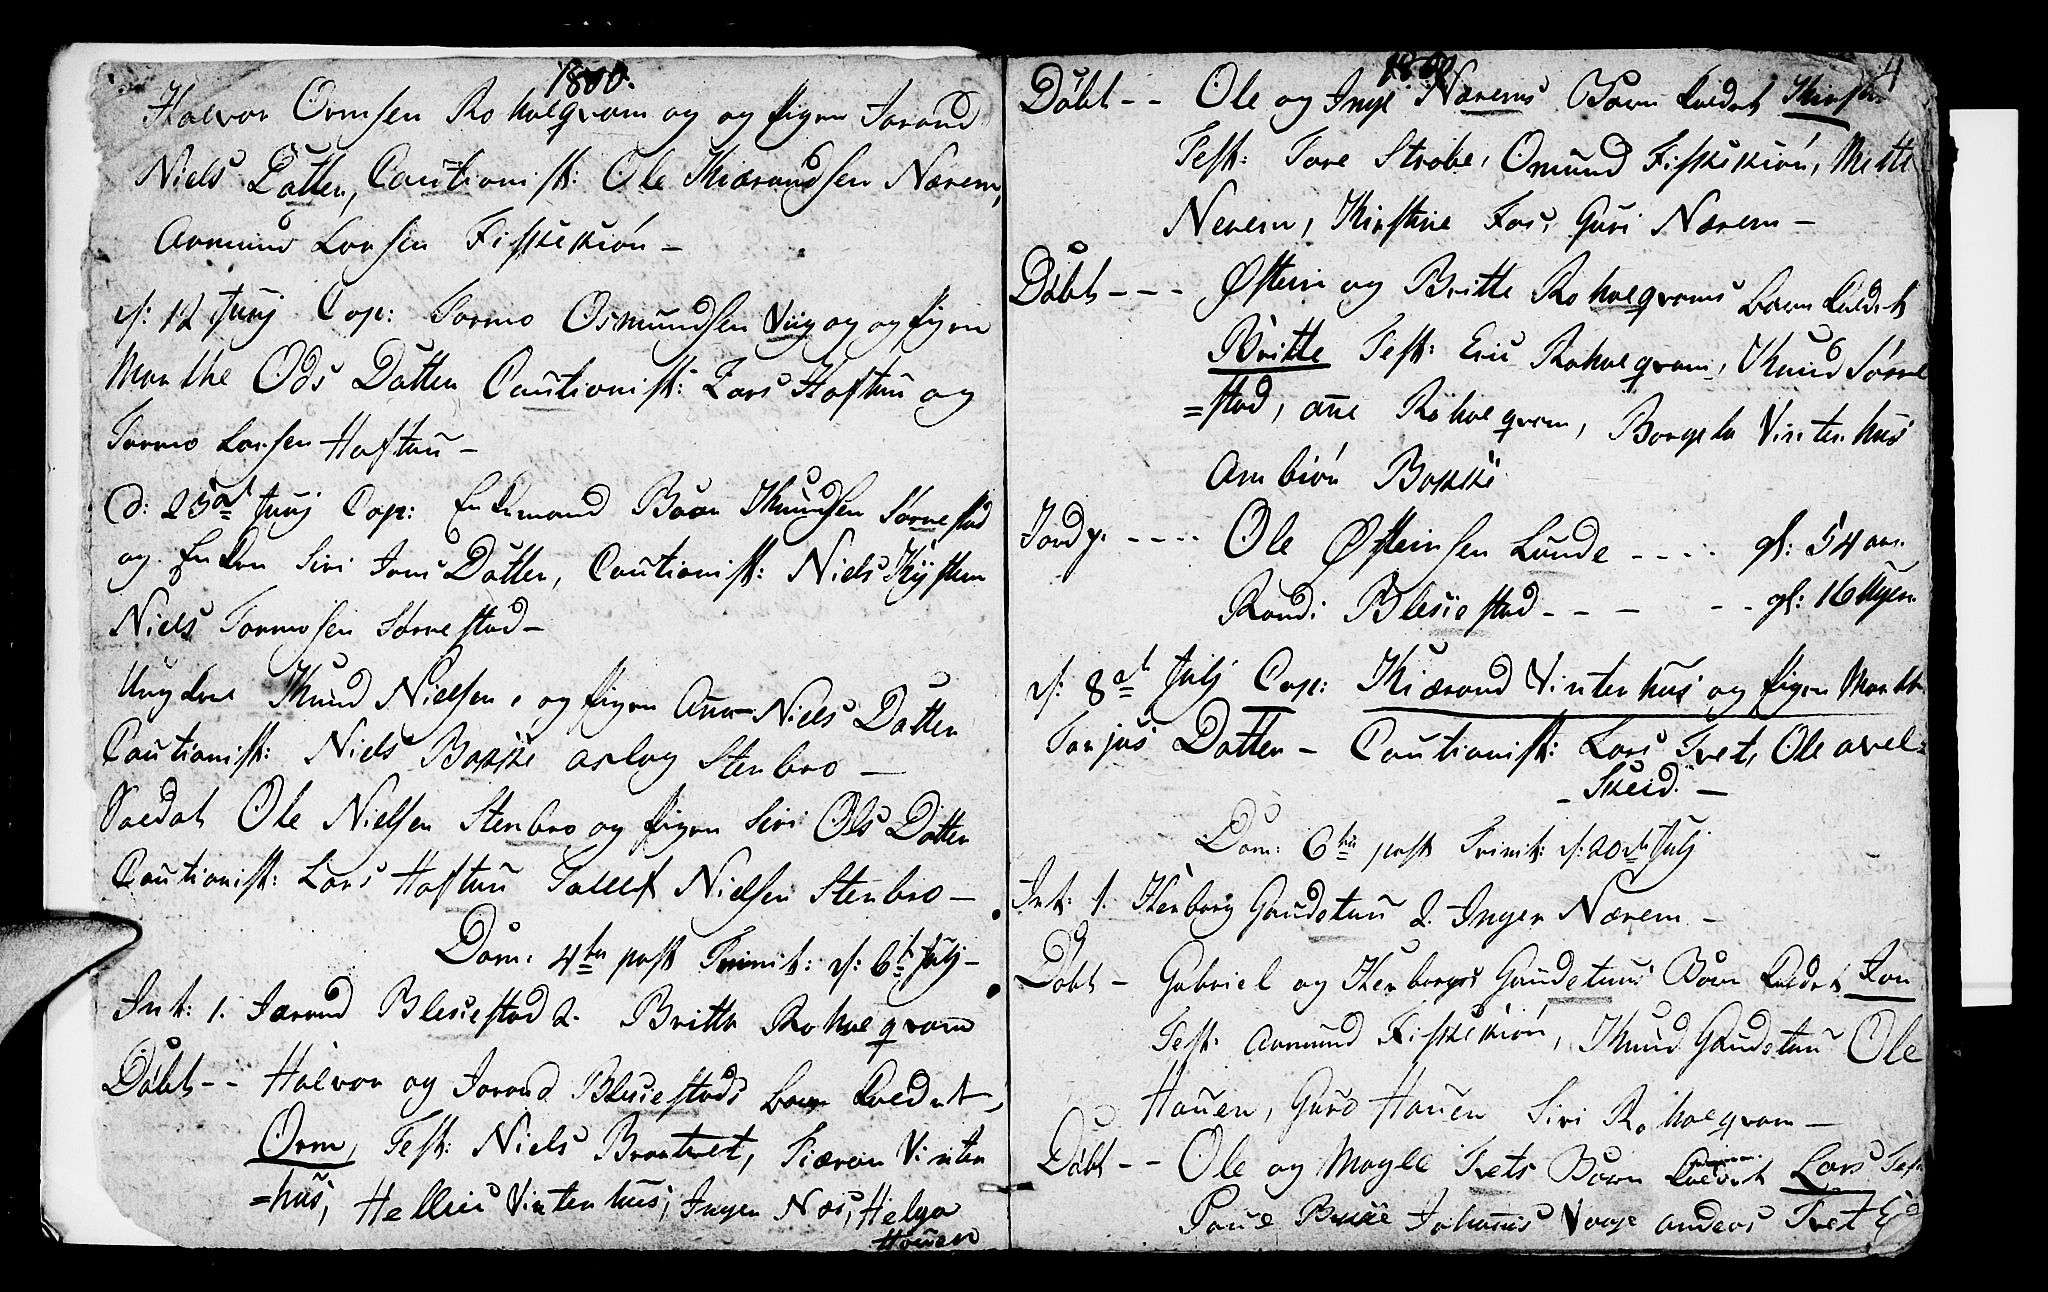 1800.
Halvor Ormsen Roholqvam og og Pigen Jorand
Niels Datter, Cautionist: Ole Kiærandsen Nærem,
Aamund Larsen Fiskekiön –
d: 12 Junj Cop: Tormo Osmundsen Viig og og Pigen
Marthe Ods Datter Cautionist: Lars Haftun og
Tormo Larsen Haftun –
d: 25de Junj Cop: Enkemand Baar Knudsen Sörnestad
og Enken Siri Jons Datter, Cautionist: Niels
Niels Tormosen Sörnestad –
Ungkarl Knud Nielsen, og Pigen Anna Niels Datter
Cautionist: Niels Bakke Aslag Stenbro –
Soldat Ole Nielsen Stenbro og Pigen Siri Ols Datter
Cautionist: Lars Haftun Tollef Nielsen Stenbro –
Dom: 4ta post Trinit: d: 6t Julj –
Int: 1. Jorand Blesiestad 2. Britta Roholqvam
Döbt -- Halvor og Jorand Blesiestads barn kaldet
Orm, Test: Niels Brattvet, Vinter
=hus, Hellie Vinterhus, Inger Næs, Helga
Hauen
1800
4
Döbt -- Ole og Inge Nærems Barn kaldet
Test: Tore Strøbe, Omund Fiskekiön, Mette
Nerem, Kirstine Fos, Guri Nærem –
Döbt --- Østen og Britte Roholqvams barn kaldet
Britte Test: Eric Roholqvam, Knud Sörne
=stad, Ane Roholqvam, Borgela Vinterhus
Anbiör Bakke
Jordf. ---- Ole Østensen Lunde ---- gl: 54 aar
Randi Blesiestad --- -- gl: 16 Uger.
d: 8de Julj Cop: Kiærand Vinterhus og Pigen Marthe
Tarjus Datter – Cautionist: Lars Tvet, Ole Avel=
– Skeid. –
Dom: 6ta post Trinit: d: 20de Julj
Int: 1. Herborg Gaudetun 2. Inger Nærem –
Döbt – Gabriel og Herborgs Gaudetuns Barn kaldet Jon
Test: Aamund Fiskekiön, Knud Gaudetun Ole
Hauen, Guro Hauen Siri Roholqvam –
Döbt -- Ole og Magle Tvets Barn kaldet Lars Test
Poul Bakke Johannes Vaage Anders Tvet